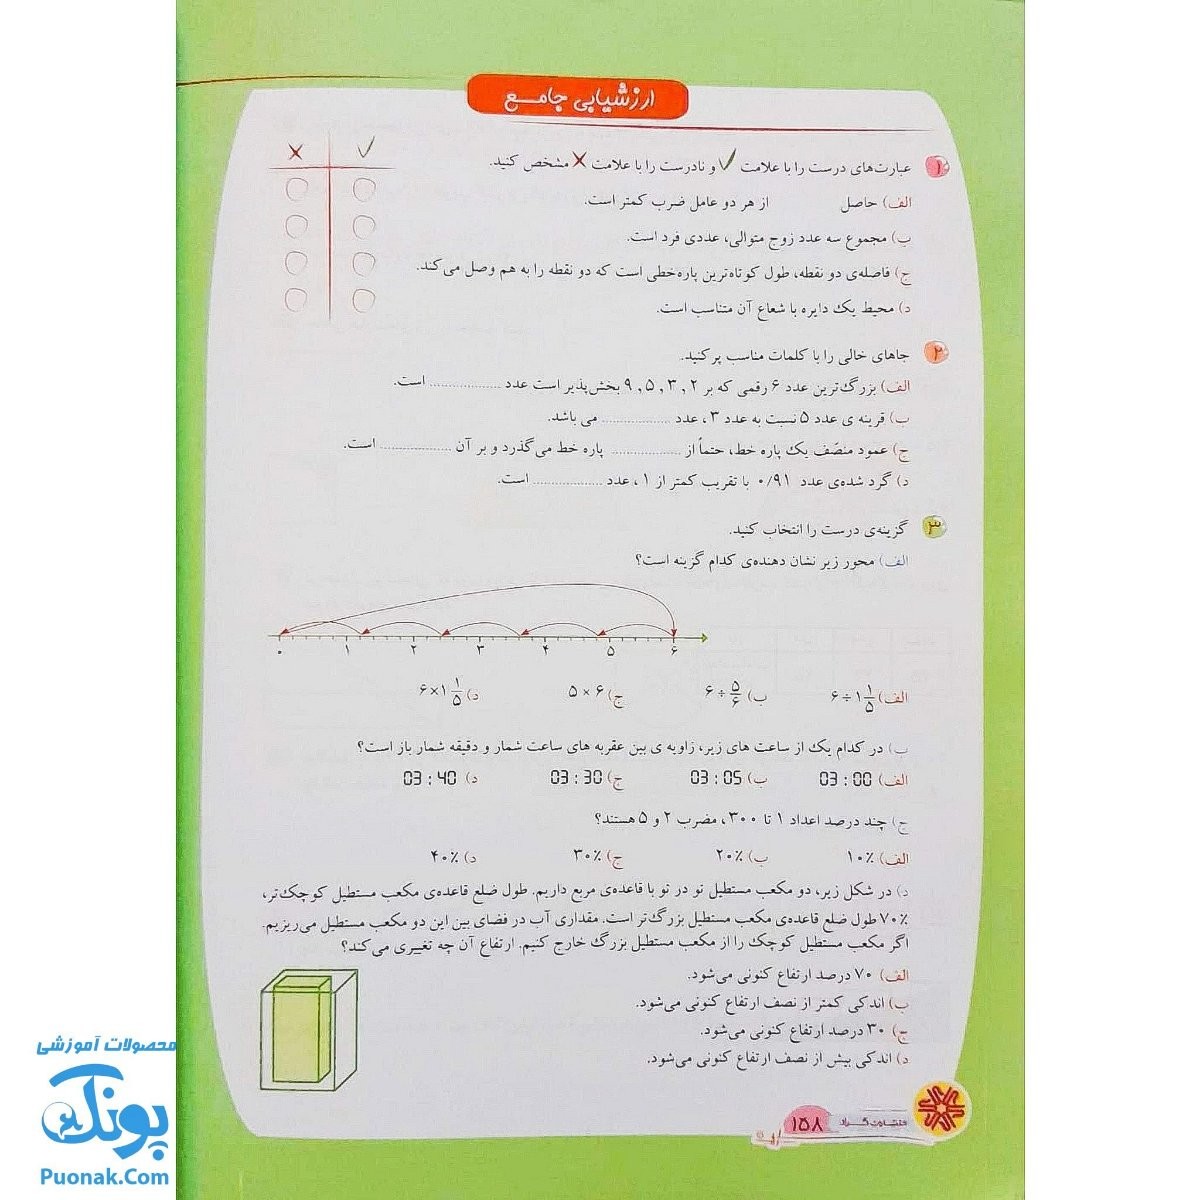 ارزشیابی جامع
✓ ✗
۱ عبارت‌های درست را با علامت ✓ و نادرست را با علامت ✗ مشخص کنید.
الف) حاصل از هر دو عامل ضرب کمتر است.
ب) مجموع سه عدد زوج متوالی، عددی فرد است.
ج) فاصله‌ی دو نقطه، طول کوتاه‌ترین پاره‌خطی است که دو نقطه را به هم وصل می‌کند.
د) محیط یک دایره با شعاع آن متناسب است.
۲ جاهای خالی را با کلمات مناسب پر کنید.
الف) بزرگ‌ترین عدد ۶ رقمی که بر ۲ , ۳ , ۵ , ۹ بخش‌پذیر است عدد .................. است.
ب) قرینه ی عدد ۵ نسبت به عدد ۳ ، عدد .................. می باشد.
ج) عمود منصّف یک پاره خط، حتماً از .................. پاره خط می‌گذرد و بر آن .................. است.
د) گرد شده‌ی عدد ۰/۹۱ با تقریب کمتر از ۱ ، عدد .................. است.
۳ گزینه‌ی درست را انتخاب کنید.
الف) محور زیر نشان دهنده‌ی کدام گزینه است؟
۰ ۱ ۲ ۳ ۴ ۵ ۶
الف) ۶ ÷ ۱ ۱/۵ ب) ۶ ÷ ۵/۶ ج) ۵ × ۶ د) ۶ × ۱ ۱/۵
ب) در کدام یک از ساعت های زیر، زاویه ی بین عقربه های ساعت شمار و دقیقه شمار باز است؟
الف) 03 : 00 ب) 03 : 05 ج) 03 : 30 د) 03 : 40
ج) چند درصد اعداد ۱ تا ۳۰۰ ، مضرب ۲ و ۵ هستند؟
الف) ۱۰٪ ب) ۲۰٪ ج) ۳۰٪ د) ۴۰٪
د) در شکل زیر، دو مکعب مستطیل تو در تو با قاعده‌ی مربع داریم. طول ضلع قاعده‌ی مکعب مستطیل کوچک‌تر،
۷۰٪ طول ضلع قاعده‌ی مکعب مستطیل بزرگ‌تر است. مقداری آب در فضای بین این دو مکعب مستطیل می‌ریزیم.
اگر مکعب مستطیل کوچک را از مکعب مستطیل بزرگ خارج کنیم. ارتفاع آن چه تغییری می‌کند؟
الف) ۷۰ درصد ارتفاع کنونی می‌شود.
ب) اندکی کمتر از نصف ارتفاع کنونی می‌شود.
ج) ۳۰ درصد ارتفاع کنونی می‌شود.
د) اندکی بیش از نصف ارتفاع کنونی می‌شود.
۱۵۸
محصولات آموزشی
پونک
Puonak.Com